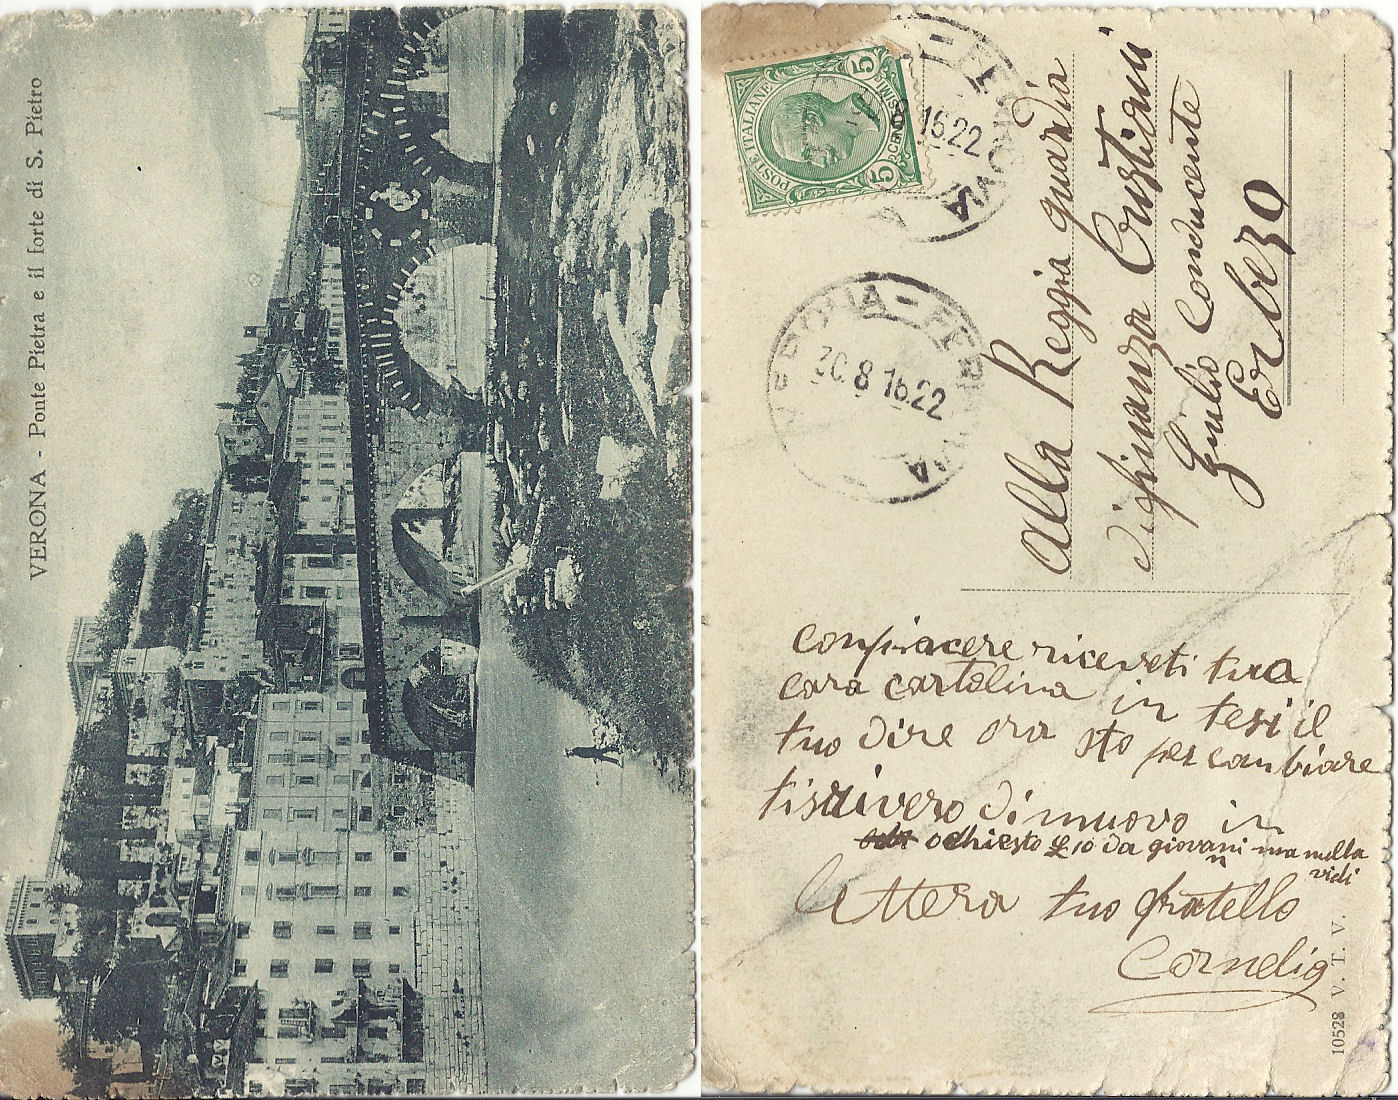 VERONA - Ponte Pietra e il forte di S. Pietro
POSTE ITALIANE
CENTESIMI
5 5
VERONA - FERROVIA
16.22
VERONA - FERROVIA
30.8 16.22
alla Reggia guardia
di finanza Cristiani
Giulio Conducente
Erbezo
con piacere riceveti tua
cara cartolina in tesi il
tuo dire ora sto per cambiare
ti scrivero di nuovo in
o chiesto £ 10 da giovanni ma nulla
vidi
lettera tuo fratello
Cornelio
10528 V. T. V.